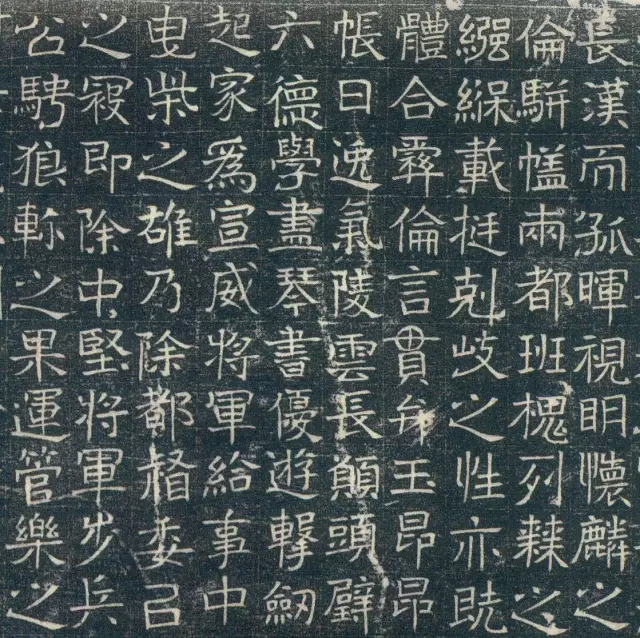 長漢而孤暉視明懷麟之
倫駢兩都班槐列棘之
繈緥載挺剋岐之性亦既
體合彝倫言貫弁玉昂昂
帳日逸氣陵雲長顛頭璧
六德學盡琴書優遊擊劒
起家爲宣威將軍給事中
曳柴之雄乃除都督委㠯
之寇即除中堅將軍步兵
公騁狼之果運管樂之